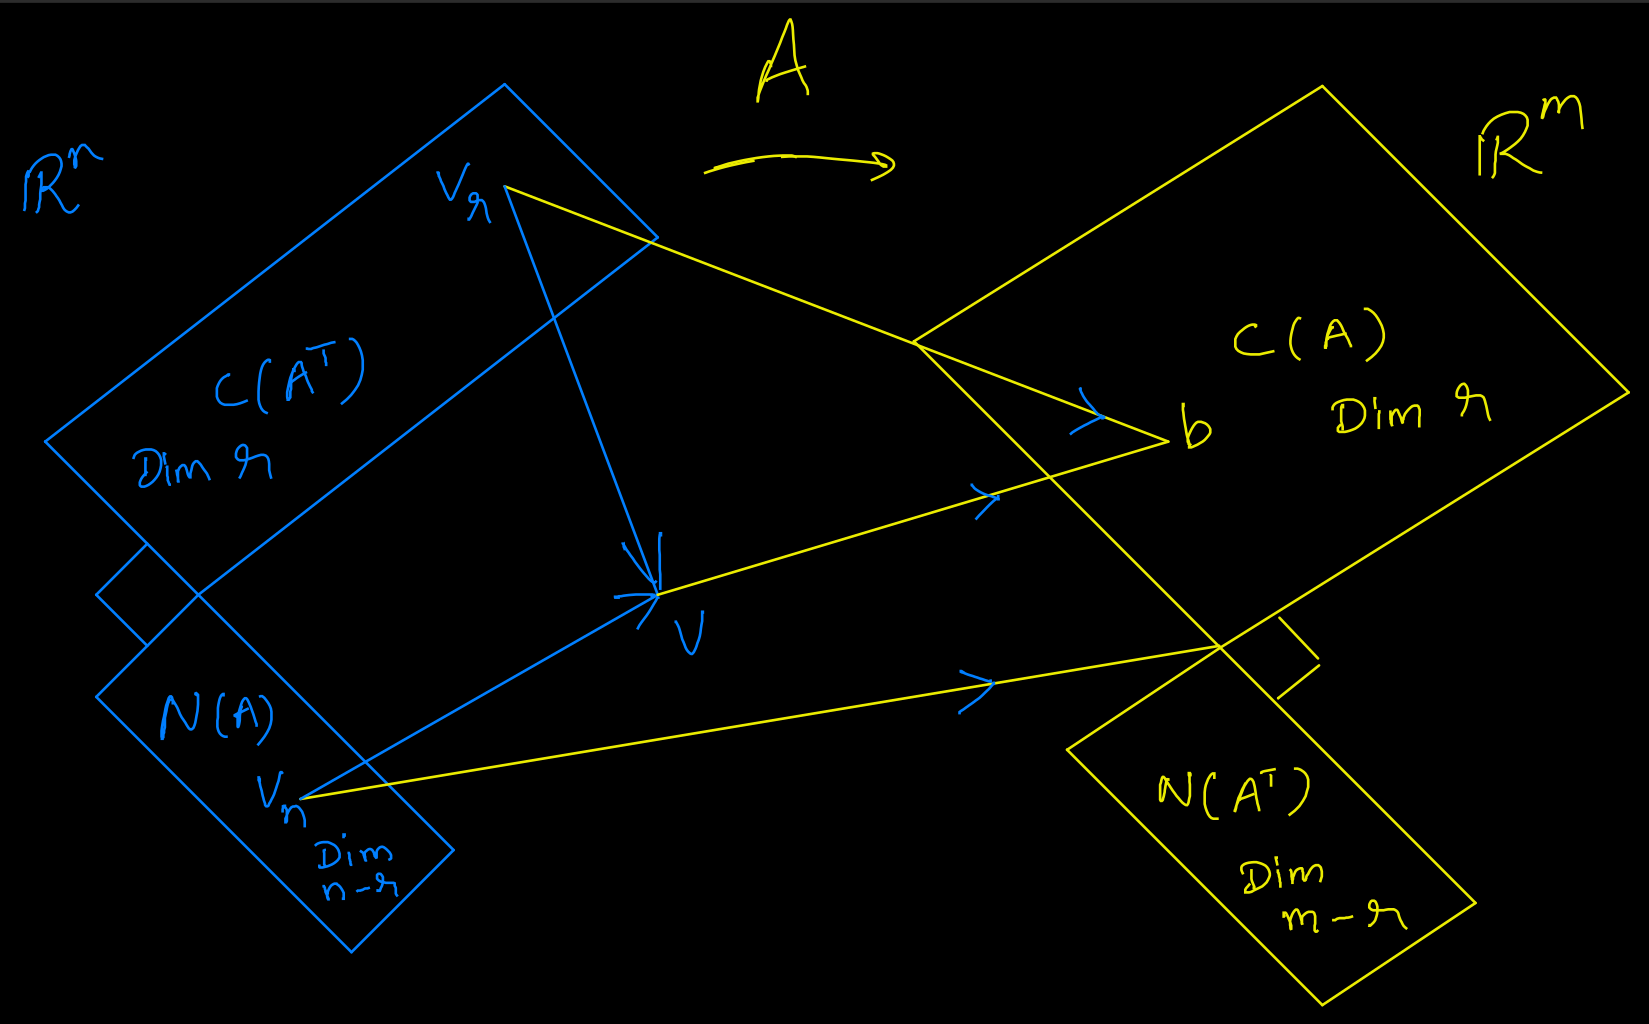 A
ℝⁿ
ℝᵐ
Vᵣ
C(Aᵀ)
Dim r
C(A)
Dim r
b
V
N(A)
Vₙ
Dim
n-r
N(Aᵀ)
Dim
m-r